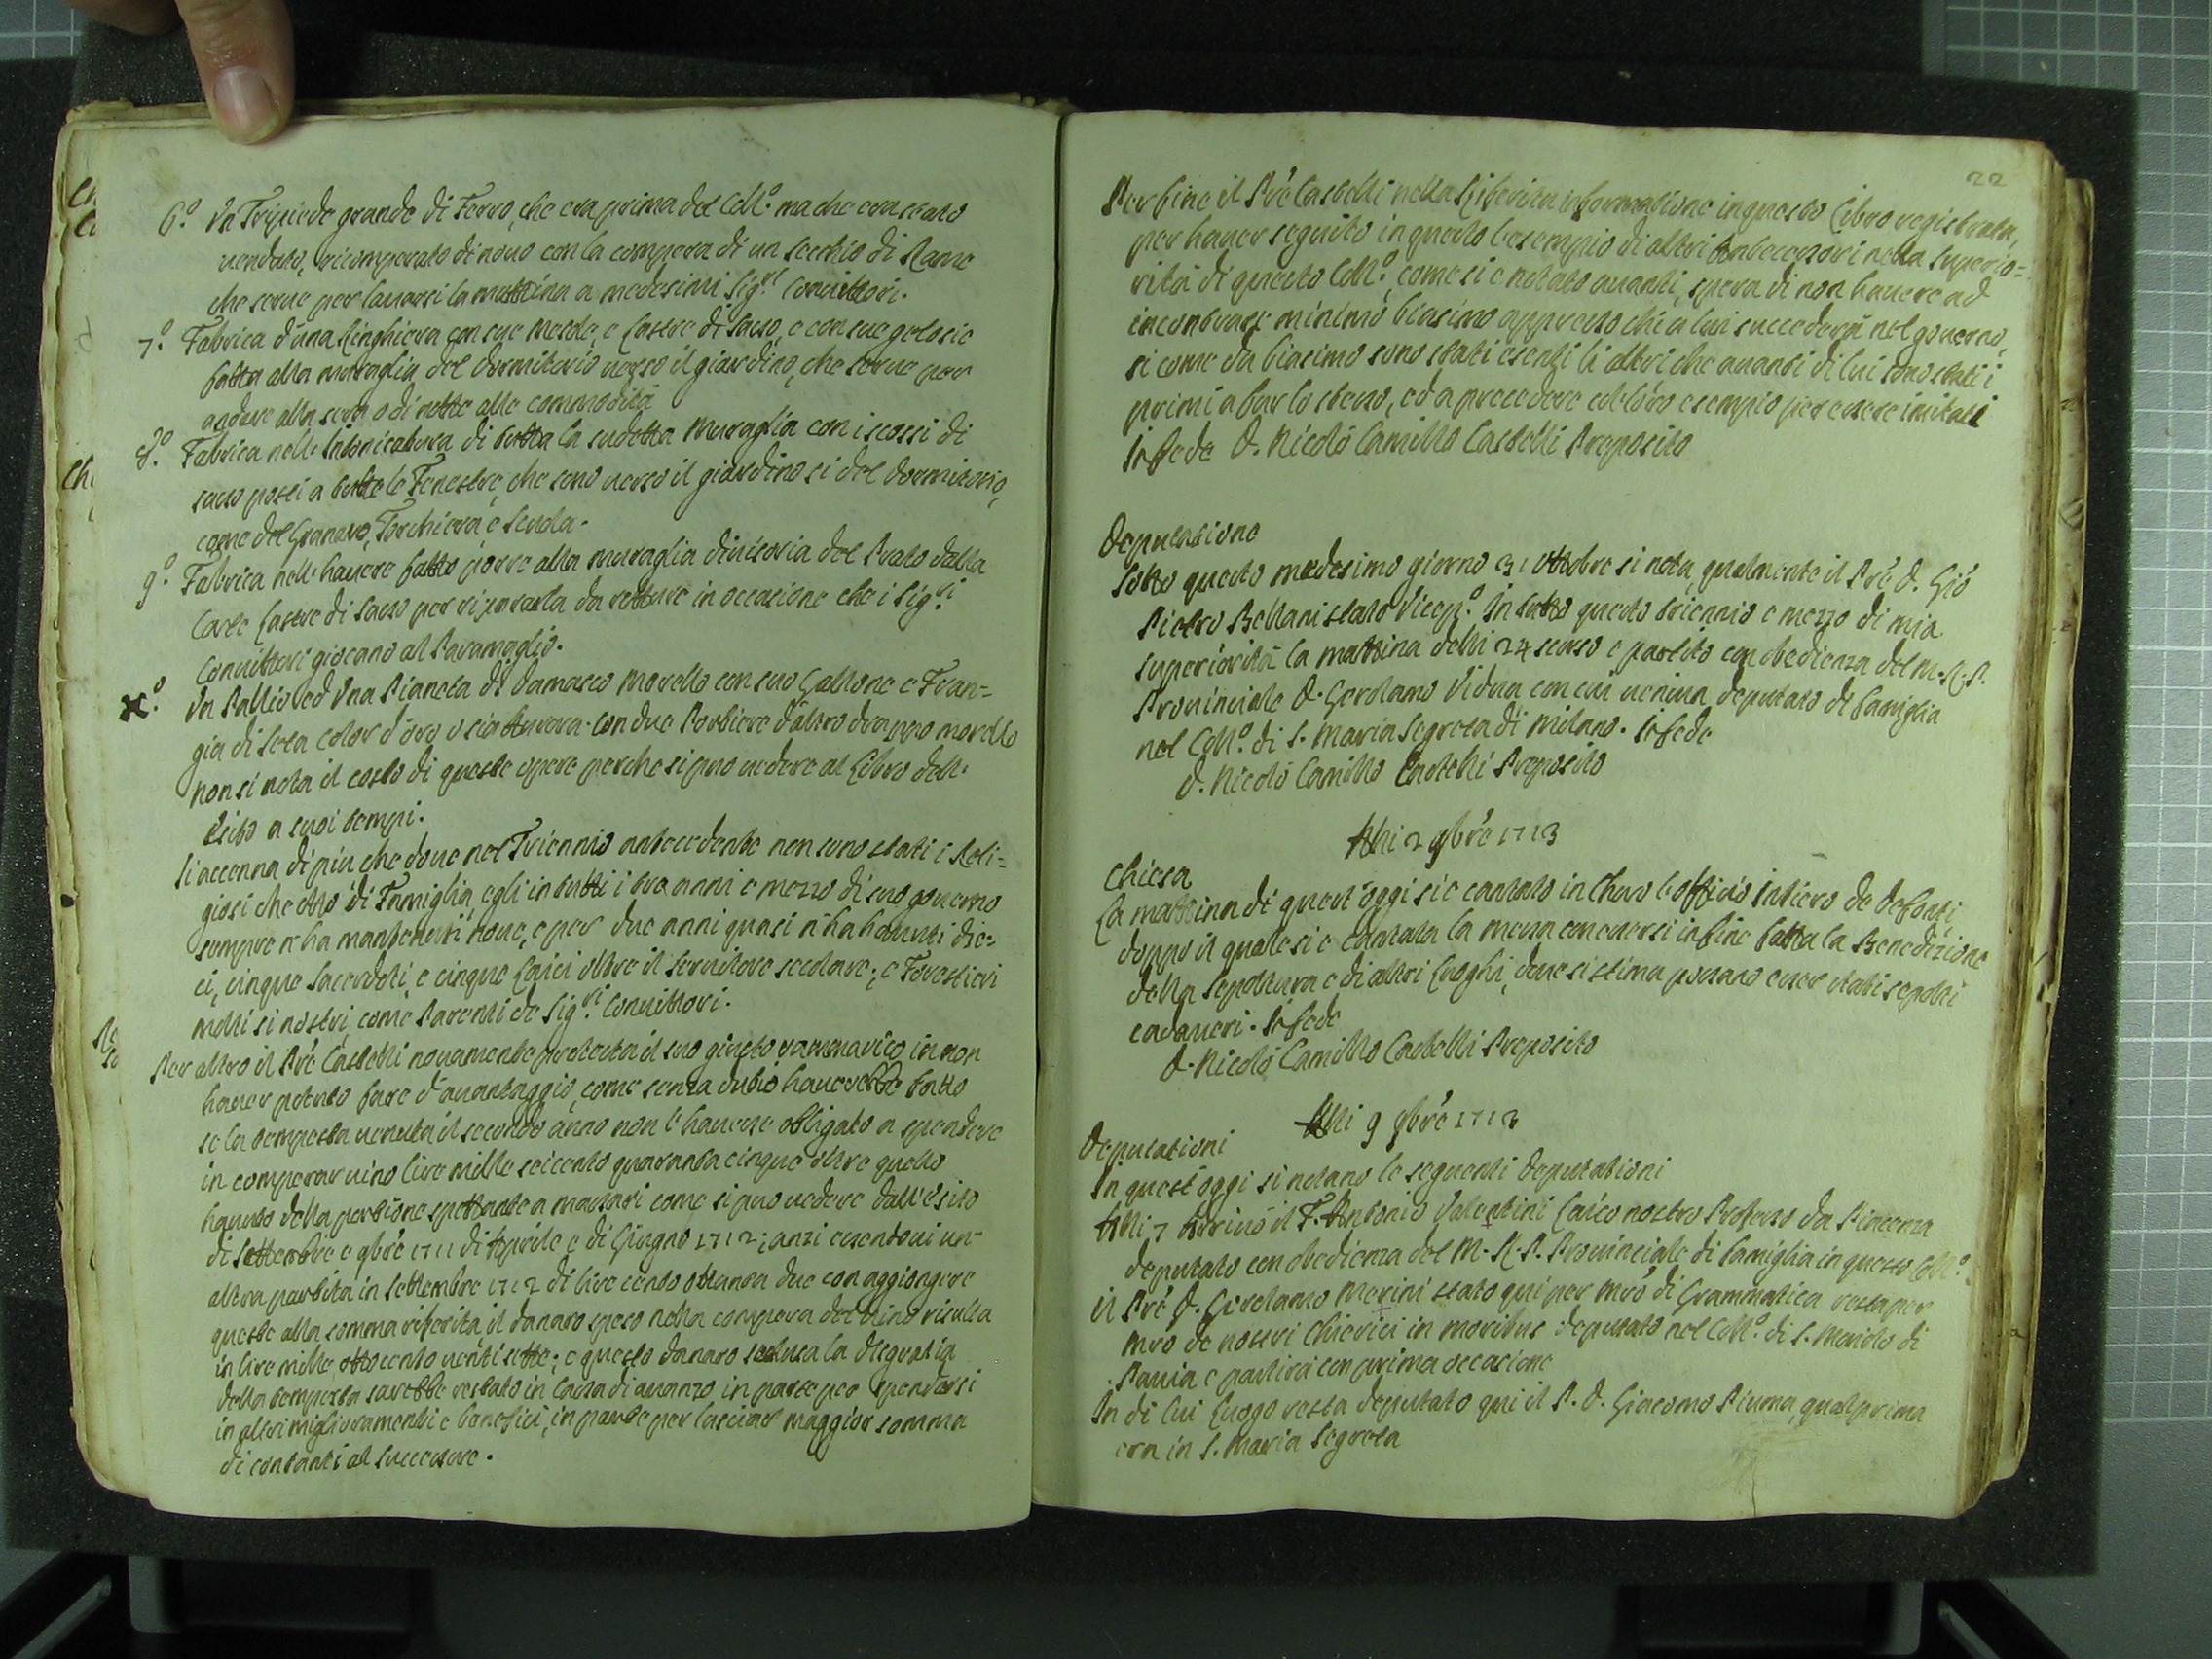 6.º Un Tripiede grande di Ferro, che era prima del Coll.º ma che era stato
venduto, ricomperato di nouo con la compera di un secchio di Rame
che serue per lauarsi la mattina a medesimi Sig.ri Conuittori.
7.º Fabrica d'una Ringhiera con sue Meede, e Lastre di Sasso, e con sue gelosie
fatta alla muraglia del dormitorio uerso il giardino, che serue per
andare alla sera o di notte alle commodità
8.º Fabrica nell'Intonicatura di tutta la sudetta Muraglia con i scossi di
sasso posti a tutte le Fenestre, che sono uerso il giardino si del dormitorio,
come del Granaro, Torchiera e Scuola.
9.º Fabrica nell'hauere fatto porre alla muraglia diuisoria del Prato dalla
Corte Lastre di Sasso per ripararla da rotture in occasione che i Sig.ri
Conuittori giocano al Paramaglio.
X.º Un Pallio ed Una Pianeta di Damasco Morello con suo Gallone e Fran=
gia di seta color d'oro o sia Aurora. con due Portiere d'altro drappo morello
Non si nota il costo di queste opere perche si puo uedere al Libro dell'
Esito a suoi tempi.
Si accenna di piu che doue nel Triennio antecedente non sono stati i Reli=
giosi che Otto di Famiglia, egli in tutti i tre anni e mezzo di suo gouerno
sempre n'ha mantenuti noue, e per due anni quasi n'ha hauuti die=
ci, cinque Sacerdoti, e cinque Laici oltre il Seruitore secolare; e Forestieri
molti si nostri, come Parenti de Sig.ri Conuittori.
Per altro il Pre Castelli nouamente protesta il suo giusto rammarico in non
hauer potuto fare d'auantaggio, come senza dubio hauerebbe fatto
se la tempesta uenuta il secondo anno non l'hauesse obligato a spendere
in comperar uino lire mille seicento quaranta cinque oltre quello
hauuto della portione spettante a massari come si puo uedere dall'esito
di Settembre e 9bre 1711 di Aprile e di Giugno 1712; anzi essendoui un'
altra partita in Settembre 1712 di lire cento ottanta due con aggiongere
queste alla somma riferita, il danaro speso nella compera del uino risulta
in lire mille ottocento uenti sette; e questo danaro seclusa la disgratia
della tempesta sarebbe restato in Cassa di auanzo in parte per spendersi
in altri miglioramenti e beneficii, in parte per lasciar maggior somma
di contanti al Successore.
22
Per fine il Pre Castelli nella Riferita informatione in questo Libro registrata,
per hauer seguito in questo l'esempio di altri Antecessori nella Superio=
rità di questo Coll.º, come si e notato auanti, spera di non hauere ad
incontrare minimo biasimo appresso chi a lui succederà nel gouerno,
si come da biasimo sono stati esenti li altri che auanti di lui sono stati i
primi a far lo stesso, ed a precedere col loro esempio per essere imitati
In fede D. Nicolò Camillo Castelli Preposito
Deputatione
Sotto questo medesimo giorno 31 Ottobre si nota, qualmente il Pre D. Gio
Pietro Bellani stato Vicep.º In tutto questo triennio e mezzo di mia
superiorità la mattina delli 24 scorso e partito con obedienza del M. R. P.
Prouinciale D. Gerolamo Vidua con cui ueniua deputato di famiglia
nel Coll.º di S. Maria Segreta di Milano. In fede
D. Nicolò Camillo Castelli Preposito
Alli 2 9bre 1713
Chiesa
La mattina di quest'oggi si è cantato in Choro l'officio intiero de defonti,
doppo il quale si e cantata la messa con essersi in fine fatta la Benedizione
della Sepoltura e di altri Luoghi, doue si stima possano esser stati sepolti
cadaueri. In fede
D. Nicolò Camillo Castelli Preposito
Alli 9 9bre 1713
Deputationi
In quest'oggi si notano le seguenti deputationi
Alli 7 Arriuò il F. Antonio Valentini Laico nostro Professo da Piacenza
deputato con obedienza del M. R. P. Prouinciale di famiglia in questo Coll.º
Il Pre D. Gerolamo Merini stato qui per Mro di Grammatica resta per
Mro de nostri Chierici in moribus deputato nel Coll.º di S. Maiolo di
Pauia e partirà con prima occasione
In di lui Luogo resta deputato qui il P. D. Giacomo Piuma, qual prima
era in S. Maria Segreta